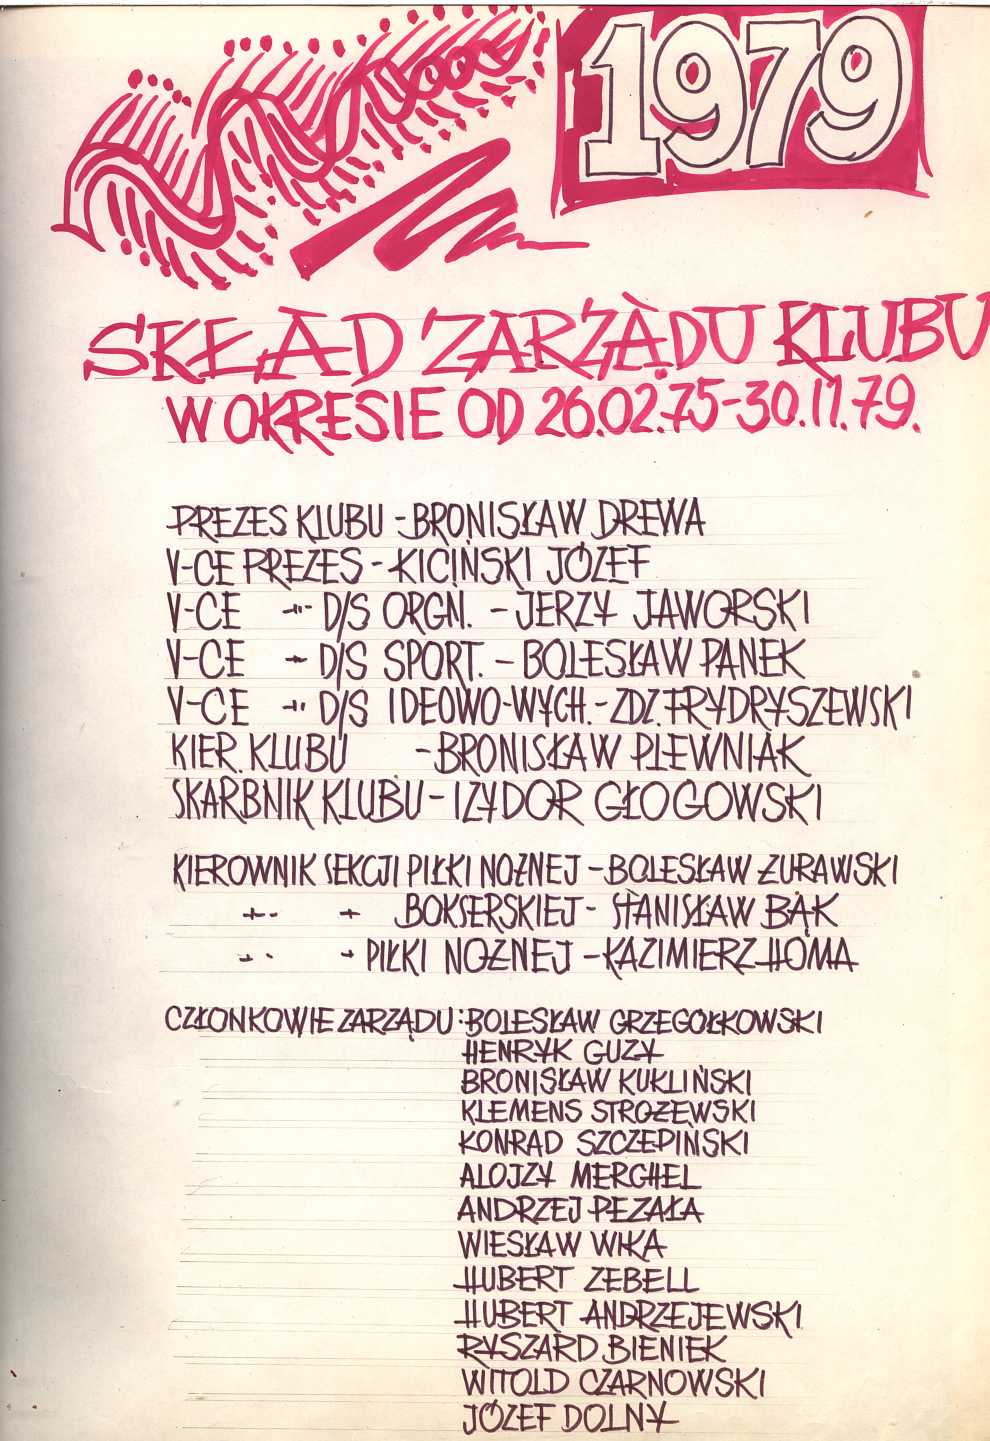 1979
SKŁAD ZARZĄDU KLUBU
W OKRESIE OD 26.02.75-30.11.79.
PREZES KLUBU - BRONISŁAW DREWA
V-CE PREZES - KICIŃSKI JÓZEF
V-CE -"- D/S ORGN. - JERZY JAWORSKI
V-CE -"- D/S SPORT. - BOLESŁAW PANEK
V-CE -"- D/S IDEOWO-WYCH. - ZDZ. FRYDRYSZEWSKI
KIER. KLUBU - BRONISŁAW PLEWNIAK
SKARBNIK KLUBU - IZYDOR GŁOGOWSKI
KIEROWNIK SEKCJI PIŁKI NOŻNEJ - BOLESŁAW ŻURAWSKI
-"- -"- BOKSERSKIEJ - STANISŁAW BĄK
-"- -"- PIŁKI NOŻNEJ - KAZIMIERZ HOMA
CZŁONKOWIE ZARZĄDU: BOLESŁAW GRZEGOŁKOWSKI
HENRYK GUZY
BRONISŁAW KUKLIŃSKI
KLEMENS STROŻEWSKI
KONRAD SZCZEPIŃSKI
ALOJZY MERCHEL
ANDRZEJ PEZAŁA
WIESŁAW WIKA
HUBERT ZEBELL
HUBERT ANDRZEJEWSKI
RYSZARD BIENIEK
WITOLD CZARNOWSKI
JÓZEF DOLNY